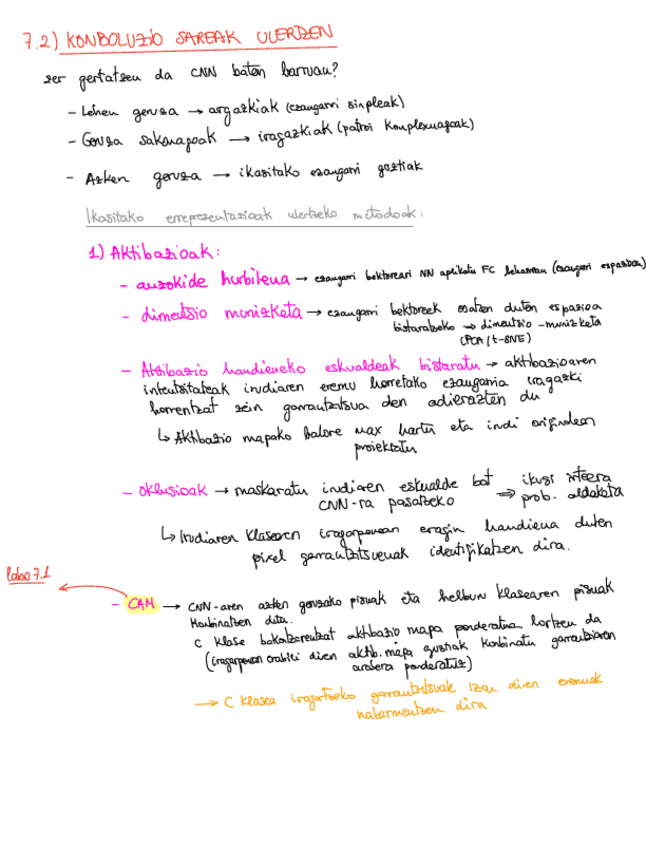 7.2) KONBOLUZIO SAREAK ULERTZEN
zer gertatzen da CNN baten barruan?
- Lehen geruza → argazkiak (ezaugarri sinpleak)
- Geruza sakonagoak → iragazkiak (patroi konplexuagoak)
- Azken geruza → ikasitako ezaugarri guztiak
Ikasitako errepresentazioak ulertzeko metodoak:
1) Aktibazioak:
- auzokide hurbilena → ezaugarri bektoreari NN aplikatu FC (ezaugarri espazioa)
- dimentsio murrizketa → ezaugarri bektoreek osatzen duten espazioa
bistaratzeko → dimentsio-murrizketa
(PCA/t-SNE)
- Aktibazio handieneko eskualdeak bistaratu → aktibazioaren
intentsitateak irudiaren eremu horretako ezaugarria iragazki
horrentzat zein garrantzitsua den adierazten du
↳ Aktibazio mapako balore max hartu eta irudi originalean
proiektatu
- oklusioak → maskaratu irudiaren eskualde bat ⇒ ikusi irteera
CNN-ra pasatzeko prob. aldaketa
↳ Irudiaren klasearen iragarpenean eragin handiena duten
pixel garrantzitsuenak identifikatzen dira.
labo 7.1
- CAM → CNN-aren azken geruzako pisuak eta helburu klasearen pisuak
konbinatzen ditu.
C klase bakoitzarentzat aktibazio mapa ponderatua lortzen da
(iragarpenean erabili diren aktib. mapa guztiak konbinatu garrantziaren
arabera ponderatuz)
→ C klasea iragartzeko garrantzitsuak izan diren eremuak
nabarmentzen dira